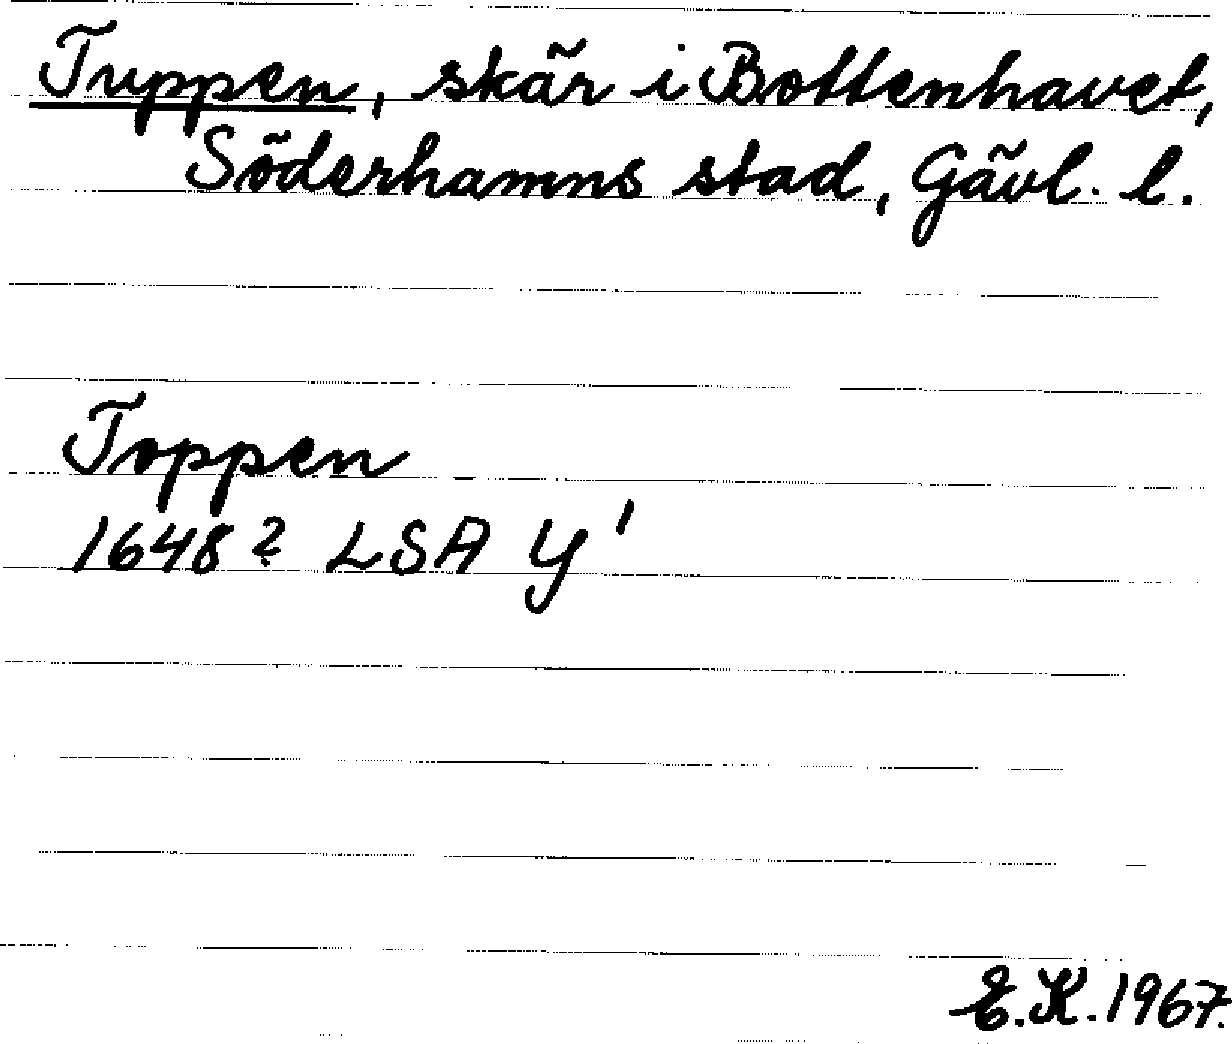 Tuppen, skär i Bottenhavet,
Söderhamns stad, Gävl. l.
Toppen
1648? LSA Y¹
E.K. 1967.